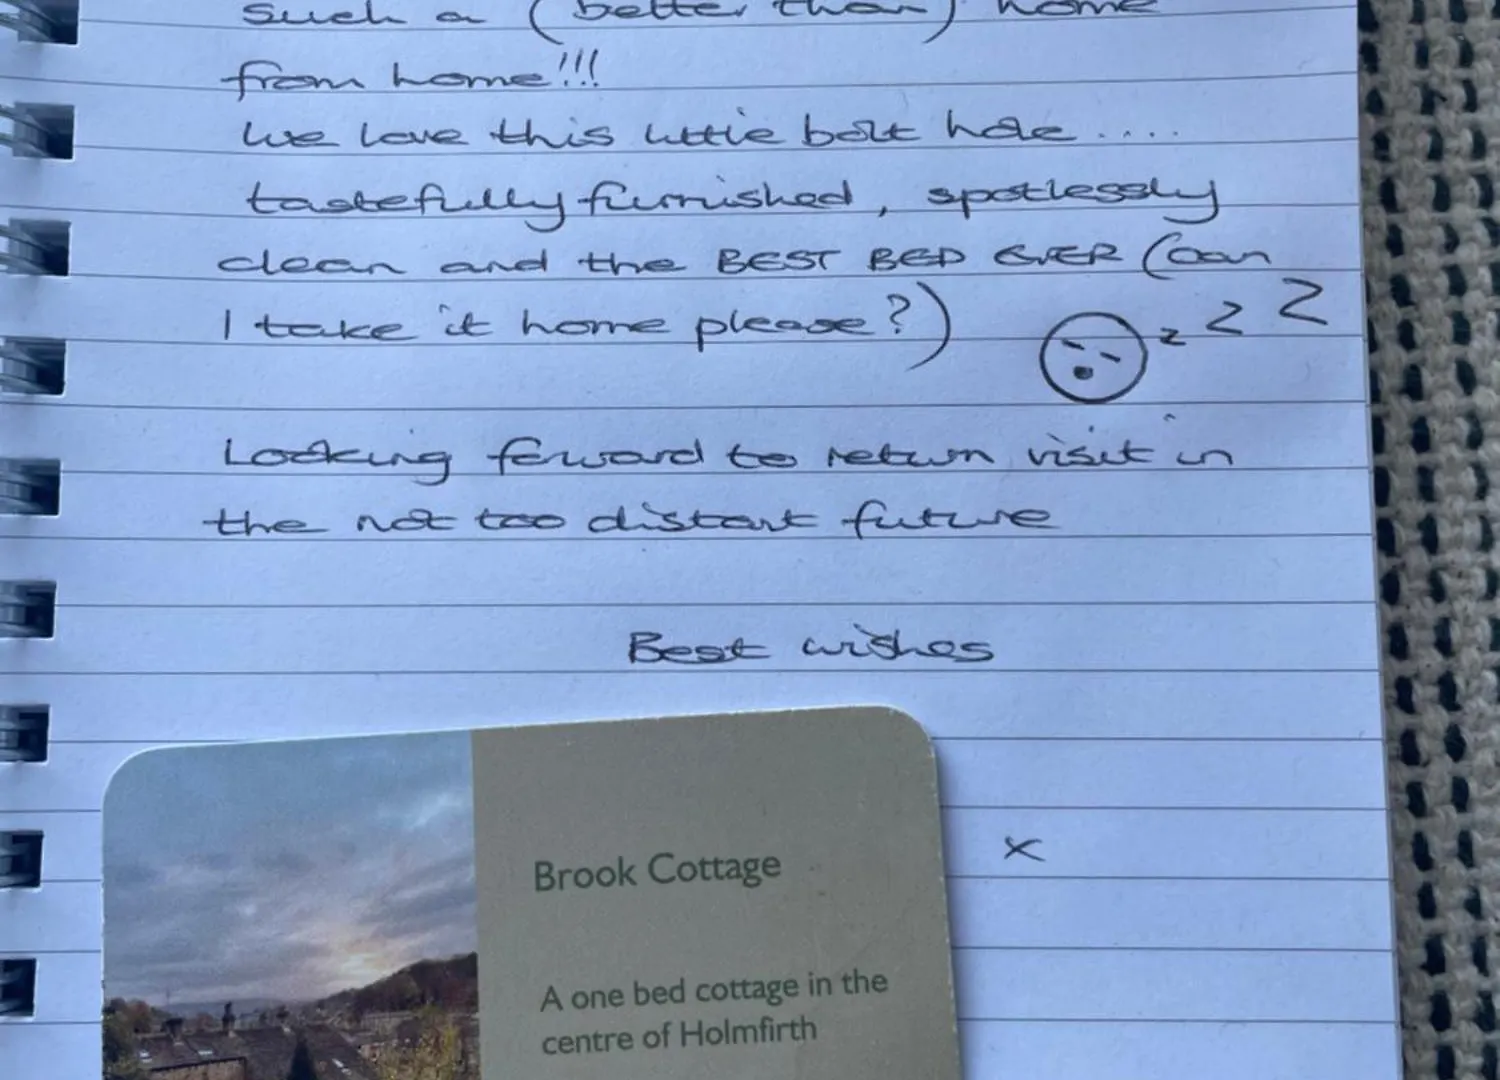 such a (better than) home
from home!!!
We love this little bolt hole .....
tastefully furnished, spotlessly
clean and the BEST BED EVER (Can
I take it home please?) z z Z
Looking forward to return visit in
the not too distant future
Best wishes
x
Brook Cottage
A one bed cottage in the
centre of Holmfirth